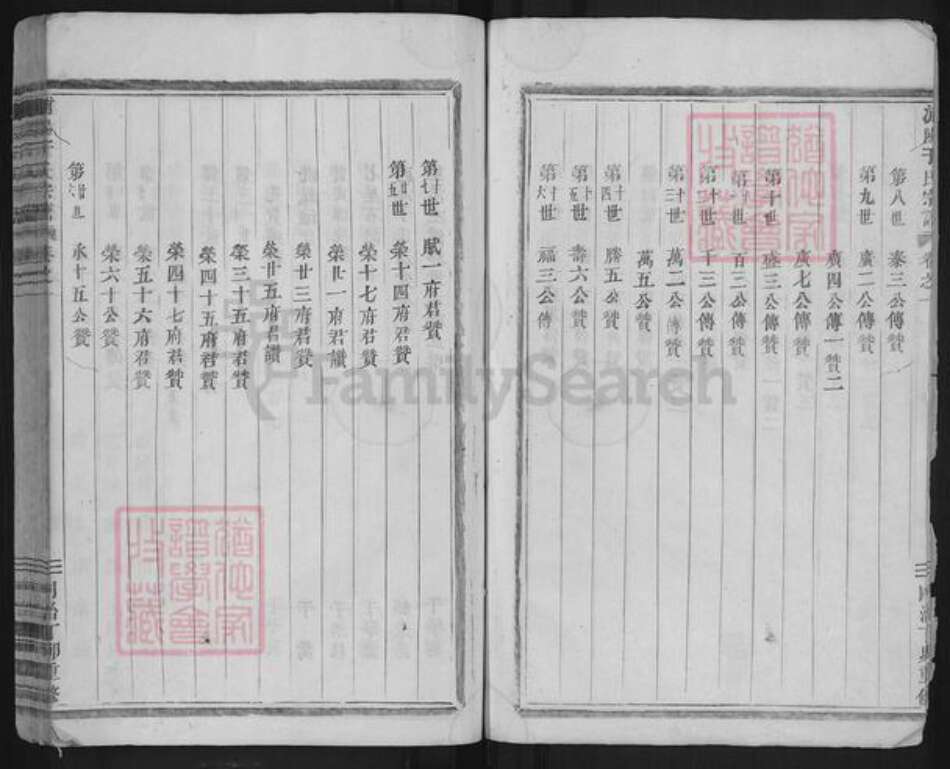 第八世 泰三公傳贊
第九世 廣二公傳贊
廣四公傳一贊二
廣七公傳贊
第十世 三公傳贊
百三公傳贊
十三公傳贊
第十三世 萬二公傳贊
萬五公贊
第十四世 勝五公贊
第十五世 壽六公贊
第十六世 福三公傳
第十七世 賦一府君贊
榮十四府君贊
榮十七府君贊
榮廿一府君讚
榮廿三府君贊
榮廿五府君讚
榮三十五府君贊
榮四十五府君贊
榮四十七府君贊
榮五十六府君贊
榮六十公贊
永十五公贊
同治丁卯重修
猶他家譜學會收藏
猶他家譜學會收藏
FamilySearch